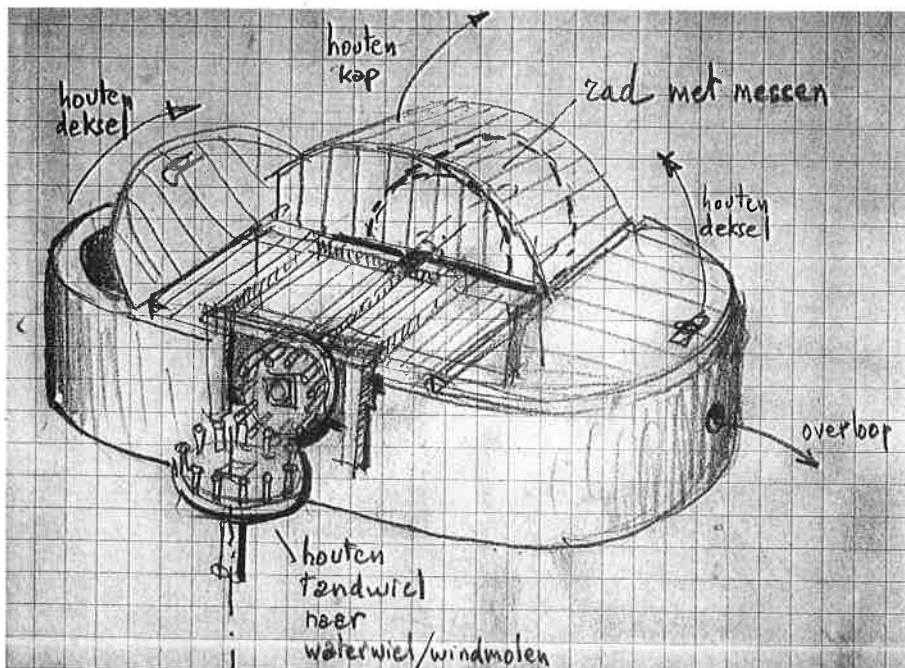 houten
kap
rad met messen
houten
deksel
houten
deksel
overloop
houten
tandwiel
naar
waterwiel/windmolen